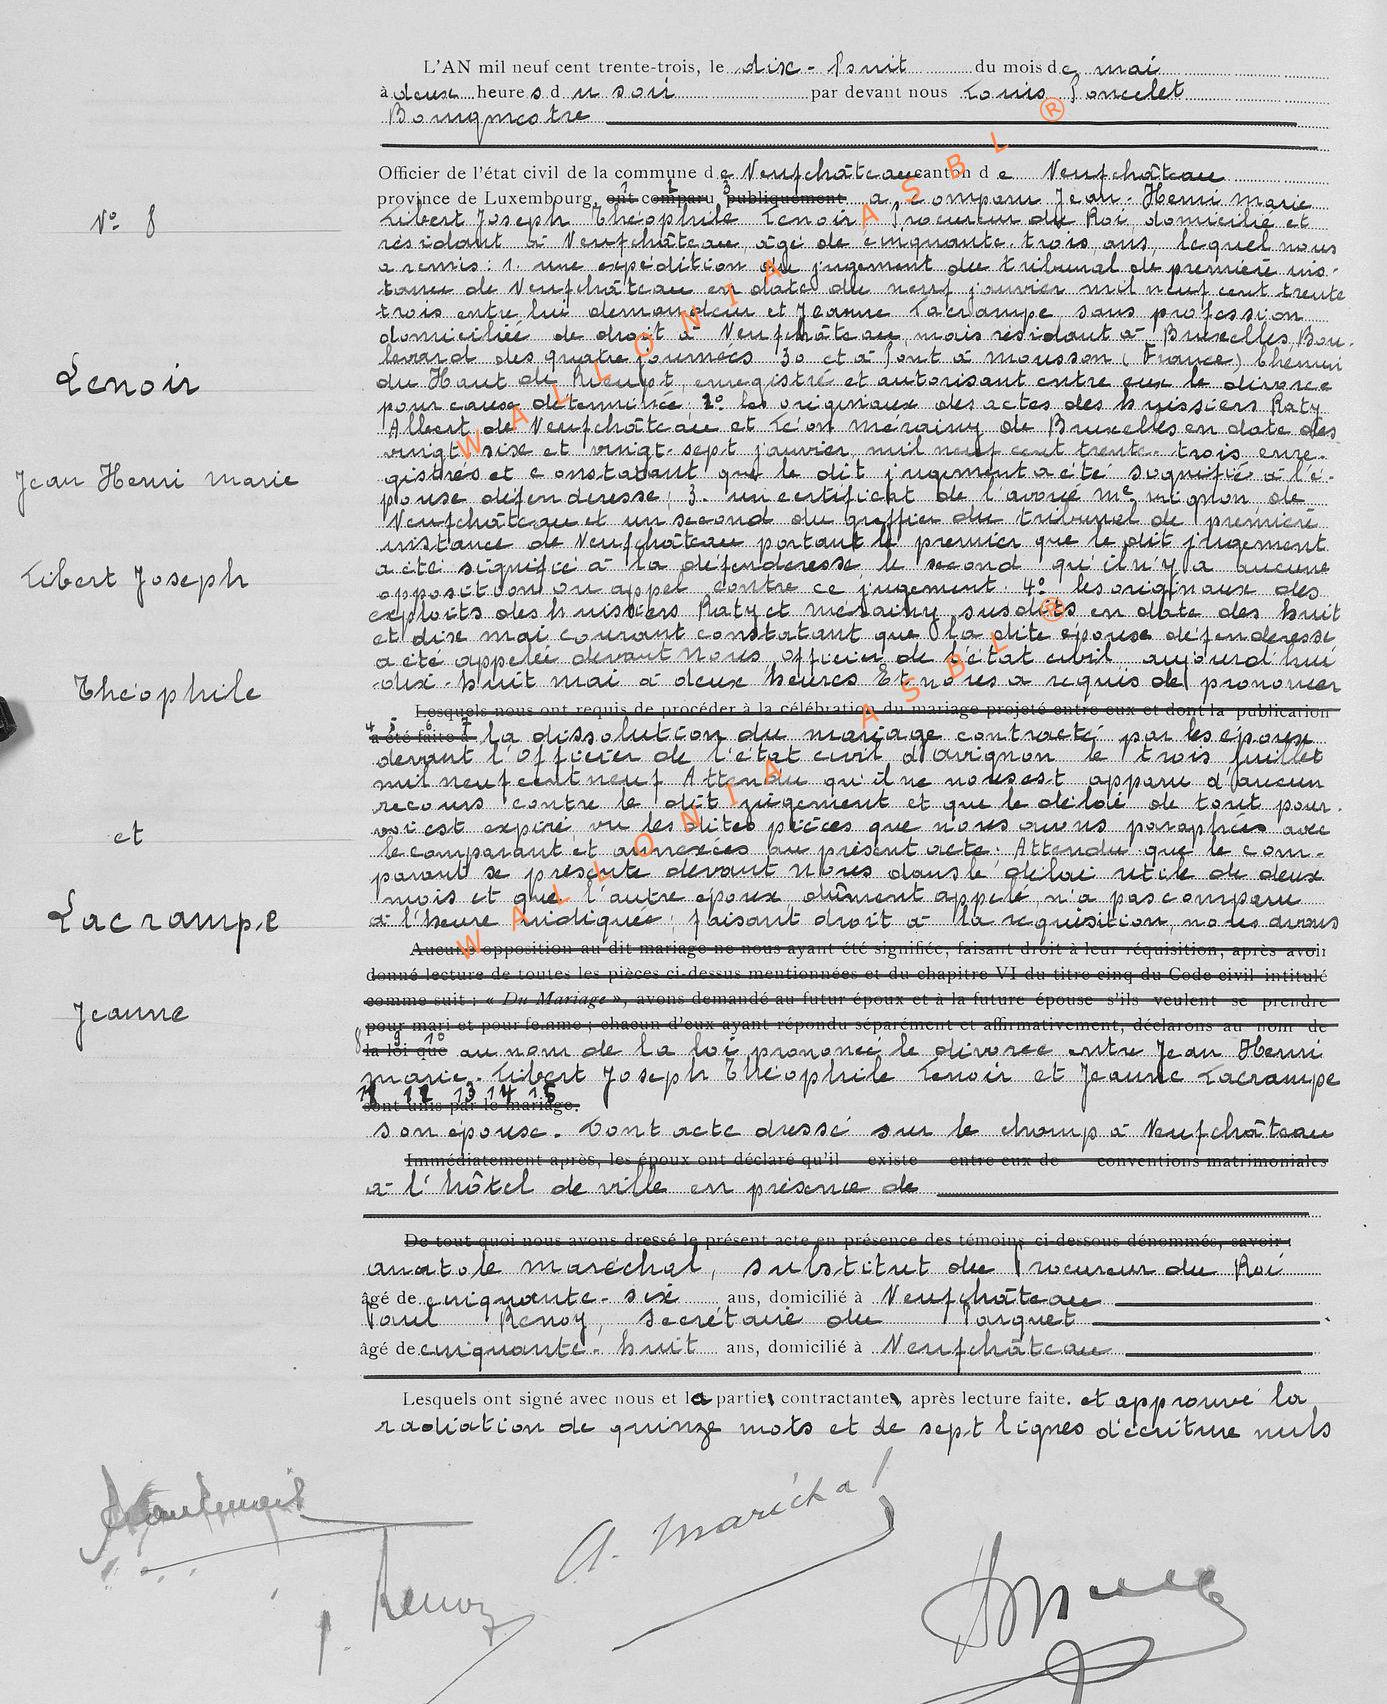 L'AN mil neuf cent trente-trois, le dix-huit du mois de mai
à deux heures du soir par devant nous Louis Poncelet
Bourgmestre
Officier de l'état civil de la commune de Neufchâteau canton de Neufchâteau
province de Luxembourg, ont comparu publiquement a comparu Jean-Henri Marie
Libert Joseph Théophile Lenoir, Procureur du Roi, domicilié et
N° 8
résidant à Neufchâteau, âgé de cinquante-trois ans, lequel nous
a remis: 1. une expédition du jugement du tribunal de première ins-
tance de Neufchâteau en date du neuf janvier mil neuf cent trente
trois entre lui demandeur et Jeanne Lacrampe, sans profession
domiciliée de droit à Neufchâteau, mais résidant à Bruxelles, Bou-
levard des quatre journées 30 et à Pont à Mousson (France) Chemin
du Haut de Rieupt, enregistré et autorisant entre eux le divorce
Lenoir
pour cause déterminée; 2° les originaux des actes des huissiers Raty
Albert de Neufchâteau et Léon Mérainy de Bruxelles en date des
vingt-six et vingt-sept janvier mil neuf cent trente-trois enre-
gistrés et constatant que le dit jugement a été signifié à l'é-
Jean Henri Marie
pouse défenderesse; 3. un certificat de l'avoué Me de
Neufchâteau et un second du greffier du tribunal de première
instance de Neufchâteau portant le premier que le dit jugement
a été signifié à la défenderesse le second qu'il n'y a aucune
Libert Joseph
opposition ou appel contre ce jugement. 4° les originaux des
exploits des huissiers Raty et Mérainy susdits en date des huit
et dix mai courant constatant que la dite épouse défenderesse
a été appelée devant Nous, officier de l'état civil aujourd'hui
dix-huit mai à deux heures Et nous a requis de prononcer
Théophile
Lesquels nous ont requis de procéder à la célébration du mariage projeté entre eux et dont la publication
4 5 6 7
a été faite à la dissolution du mariage contracté par les époux
devant l'Officier de l'état civil d'Avignon le trois juillet
mil neuf cent neuf Attendu qu'il ne nous est apparu d'aucun
recours contre le dit jugement et que le délai de tout pour-
voi est expiré vu les dites pièces que nous avons paraphées avec
et
le comparant et annexées au présent acte; Attendu que le com-
parant se présente devant Nous dans le délai utile de deux
mois et que l'autre époux dûment appelé n'a pas comparu
à l'heure indiquée; faisant droit à la réquisition, nous avons
Lacrampe
Aucune opposition au dit mariage ne nous ayant été signifiée, faisant droit à leur réquisition, après avoir
donné lecture de toutes les pièces ci-dessus mentionnées et du chapitre VI du titre cinq du Code civil intitulé
comme suit : « Du Mariage », avons demandé au futur époux et à la future épouse s'ils veulent se prendre
Jeanne
pour mari et pour femme; chacun d'eux ayant répondu séparément et affirmativement, déclarons au nom de
8 9 10
la loi que au nom de la loi prononcé le divorce entre Jean Henri
Marie-Libert Joseph Théophile Lenoir et Jeanne Lacrampe
11 12 13 14 15
sont unis par le mariage.
son épouse. Dont acte dressé sur le champ à Neufchâteau
Immédiatement après, les époux ont déclaré qu'il existe entre eux de conventions matrimoniales
à l'hôtel de ville en présence de
De tout quoi nous avons dressé le présent acte en présence des témoins ci-dessous dénommés, savoir :
Anatole Maréchal, substitut du Procureur du Roi
âgé de cinquante-six ans, domicilié à Neufchâteau
Paul Renoy, secrétaire du Parquet
âgé de cinquante-huit ans, domicilié à Neufchâteau
Lesquels ont signé avec nous et la partie contractante, après lecture faite. et approuvé la
radiation de quinze mots et de sept lignes d'écriture nuls
A. Maréchal
P. Renoy
WALLONIA ASBL ®
WALLONIA ASBL ®